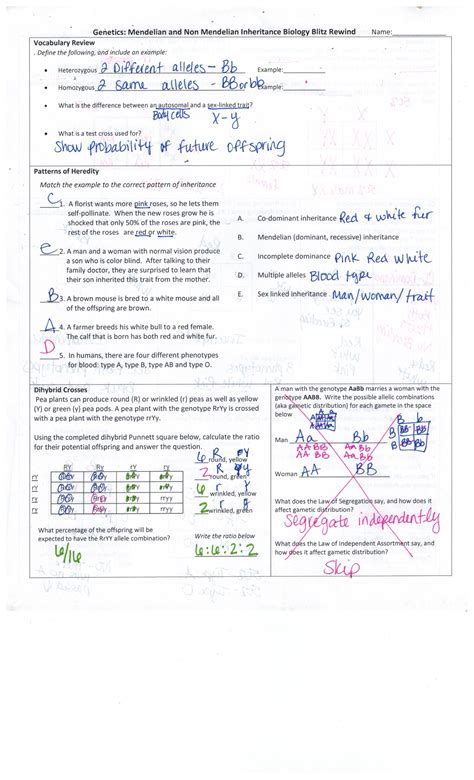 Genetics: Mendelian and Non Mendelian Inheritance Biology Blitz Rewind Name:
Vocabulary Review
. Define the following, and include an example:
• Heterozygous 2 Different alleles - Bb Example:
• Homozygous 2 same alleles - BB or bb Example:
• What is the difference between an autosomal and a sex-linked trait?
Body cells X-y
• What is a test cross used for?
Show probability of future offspring
Patterns of Heredity
Match the example to the correct pattern of inheritance
C 1. A florist wants more pink roses, so he lets them
self-pollinate. When the new roses grow he is
shocked that only 50% of the roses are pink, the
rest of the roses are red or white.
e 2. A man and a woman with normal vision produce
a son who is color blind. After talking to their
family doctor, they are surprised to learn that
their son inherited this trait from the mother.
B 3. A brown mouse is bred to a white mouse and all
of the offspring are brown.
A 4. A farmer breeds his white bull to a red female.
The calf that is born has both red and white fur.
D 5. In humans, there are four different phenotypes
for blood: type A, type B, type AB and type O.
A. Co-dominant inheritance Red & white fur
B. Mendelian (dominant, recessive) inheritance
C. Incomplete dominance Pink Red White
D. Multiple alleles Blood type
E. Sex linked inheritance Man/woman/trait
Dihybrid Crosses
Pea plants can produce round (R) or wrinkled (r) peas as well as yellow
(Y) or green (y) pea pods. A pea plant with the genotype RrYy is crossed
with a pea plant with the genotype rrYy.
Using the completed dihybrid Punnett square below, calculate the ratio
for their potential offspring and answer the question.
RY Ry rY ry
rY
ry
rY
ry
rryy
rryy
6 round, yellow
2 round, green
6 wrinkled, yellow
2 wrinkled, green
What percentage of the offspring will be
expected to have the RrYY allele combination?
6/16
Write the ratio below
6:6:2:2
A man with the genotype AaBb marries a woman with the
genotype AABB. Write the possible allelic combinations
(aka gametic distribution) for each gamete in the space
below
Man Aa Bb
Woman AA BB
What does the Law of Segregation say, and how does it
affect gametic distribution?
Segregate independently
What does the Law of Independent Assortment say, and
how does it affect gametic distribution?
Skip